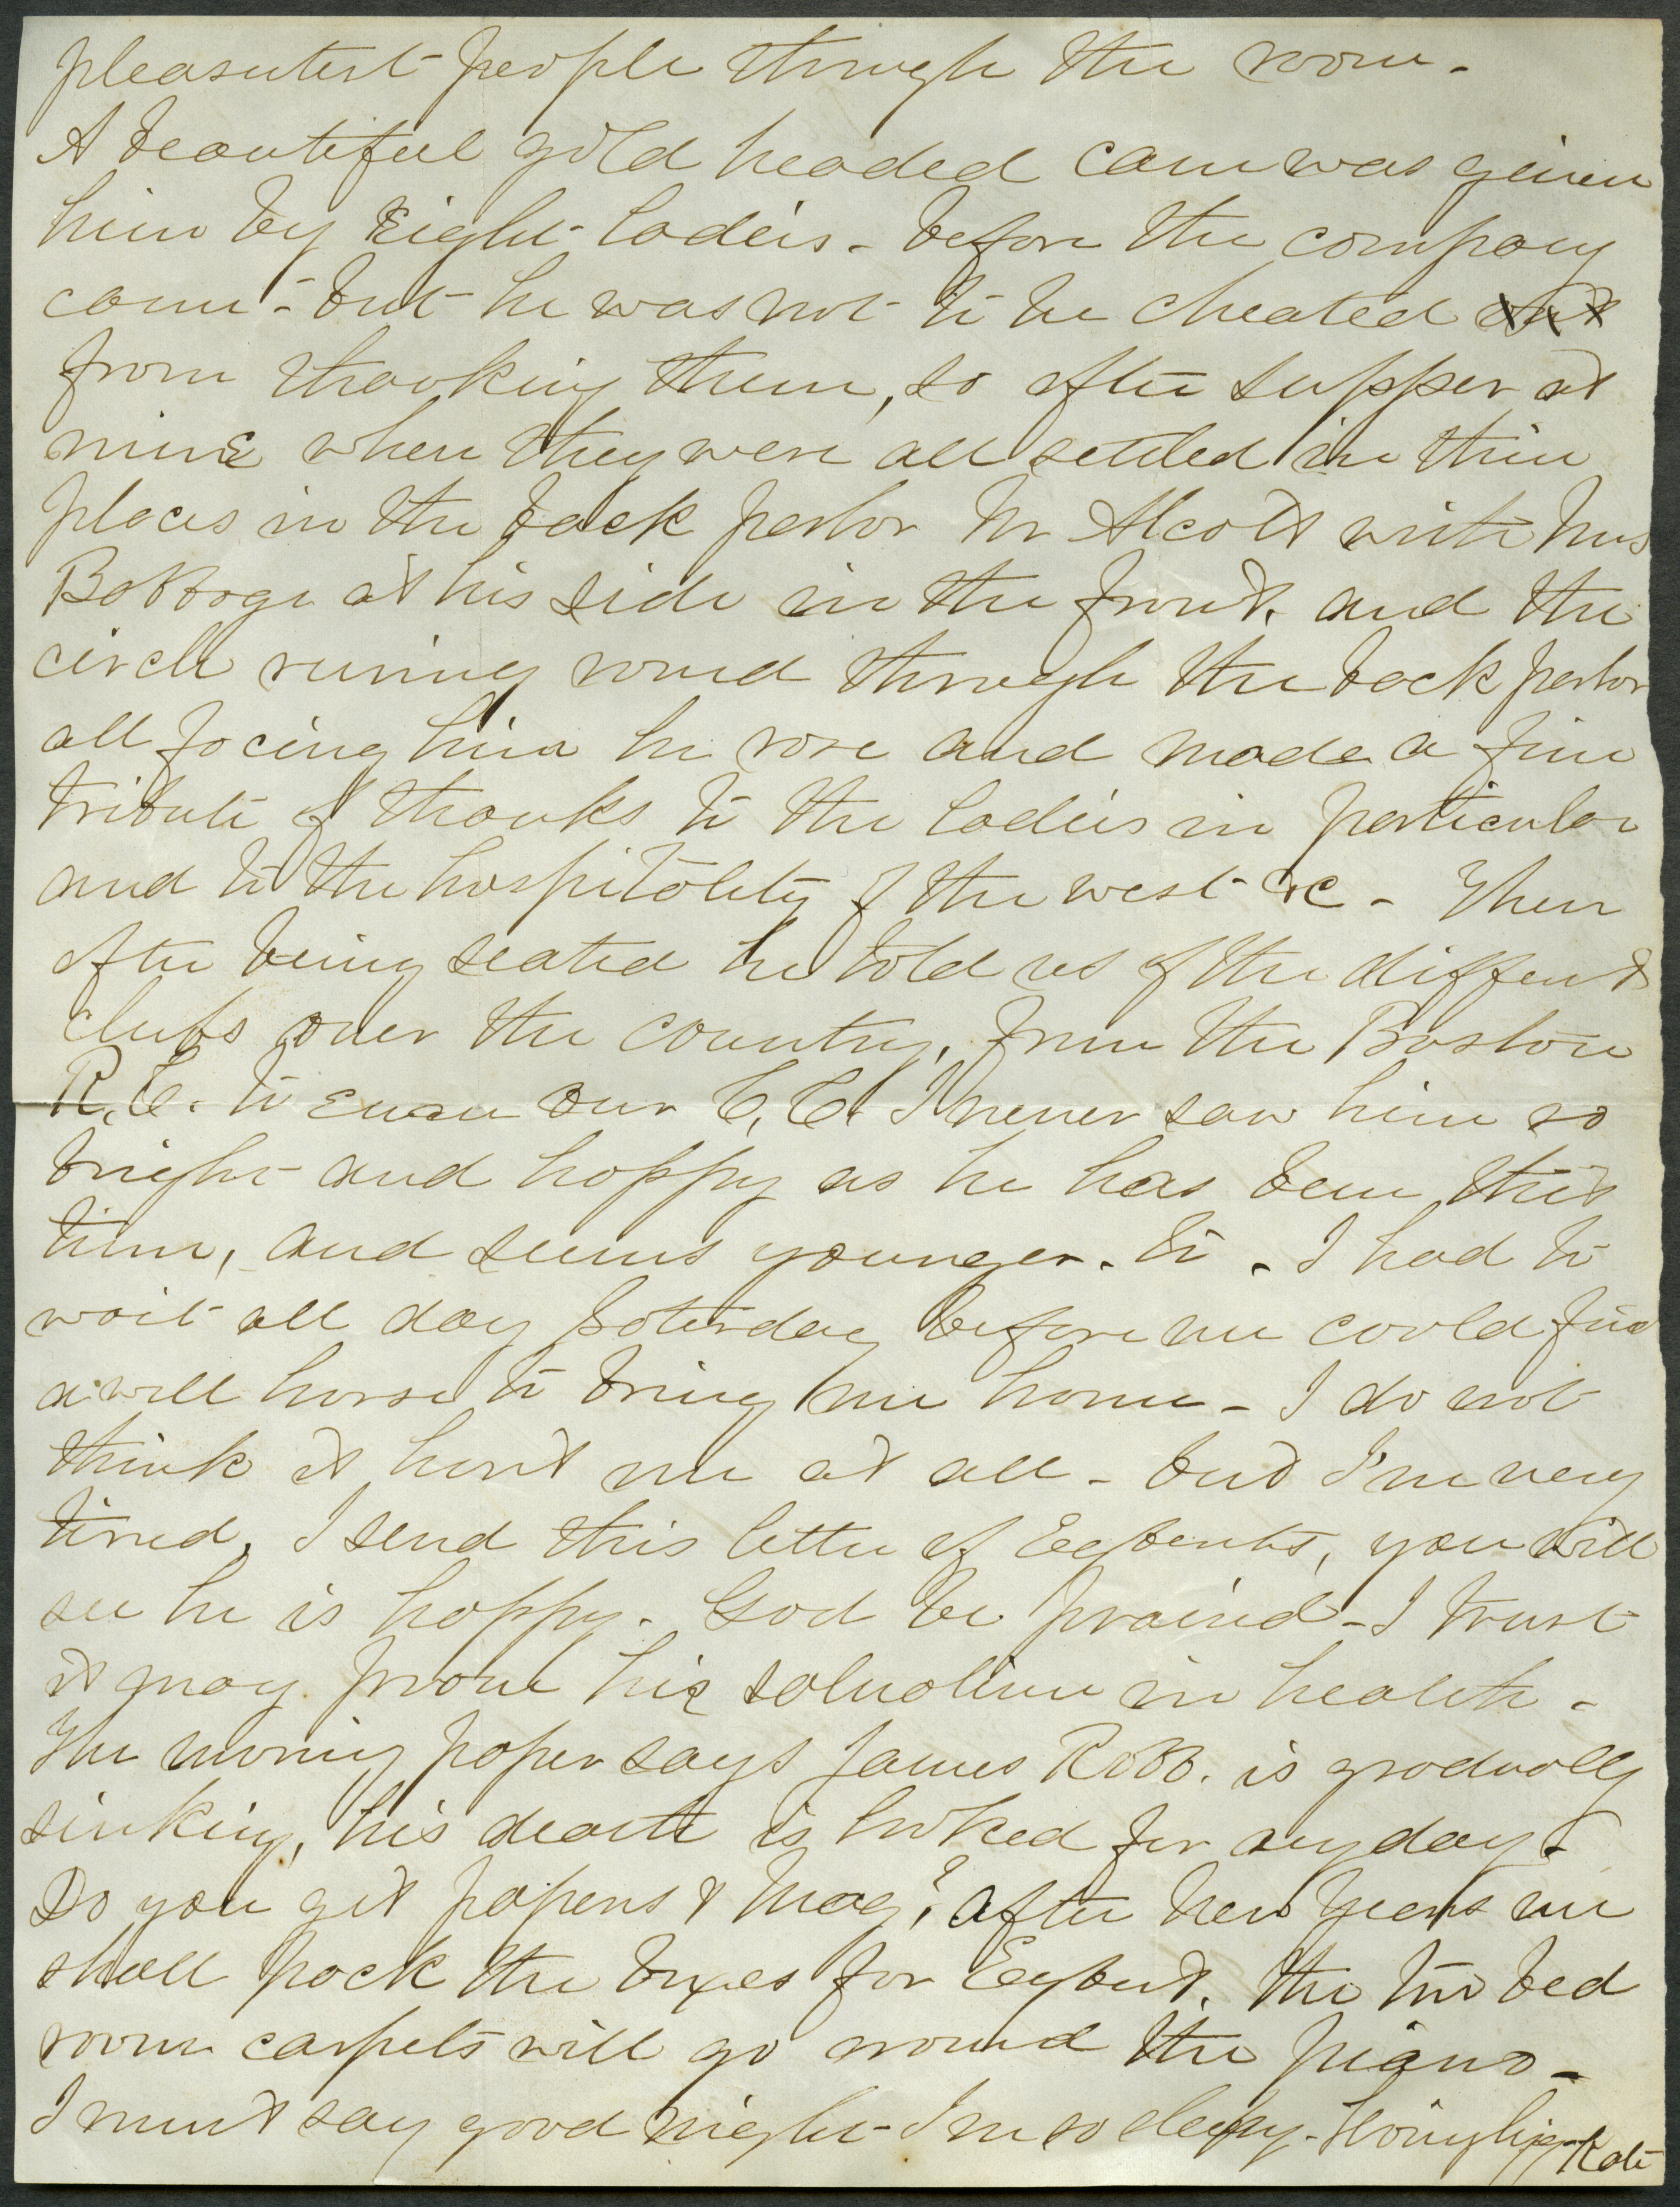 pleasutest people through the room -
A beautiful gold headed cane was given
him by Eight ladeis - before the company
came - but he was not to be cheated out
from thanking them, so after supper at
nine when they were all settled in thier
places in the back parlor Mr Alcott with Mrs
Babbage at his side in the front, and the
circle runing round through the back parlor
all facing him he rose and made a fine
tribute of thanks to the ladeis in particular
and to the hospitality of the west &c - Then
after being seated he told us of the diffent
clubs over the country, from the Boston
R. C. to even our C. C. I never saw him so
bright and happy as he has been this
time, and seems younger. to. I had to
wait all day saterday before we could find
a well horse to bring me home - I do not
think it hurt me at all - but I'm very
tired, I send this letter of Egbert's, you will
see he is happy. God be praised - I trust
it may prove his salvation in health -
The morning paper says James Robb. is gradually
sinking, his death is looked for any day -
Do you get papers & Mag? after New Years we
shall pack the boxes for Egbert, the two bed
room carpets will go around the piano -
I must say good night - I'm so sleepy - lovingly Kate